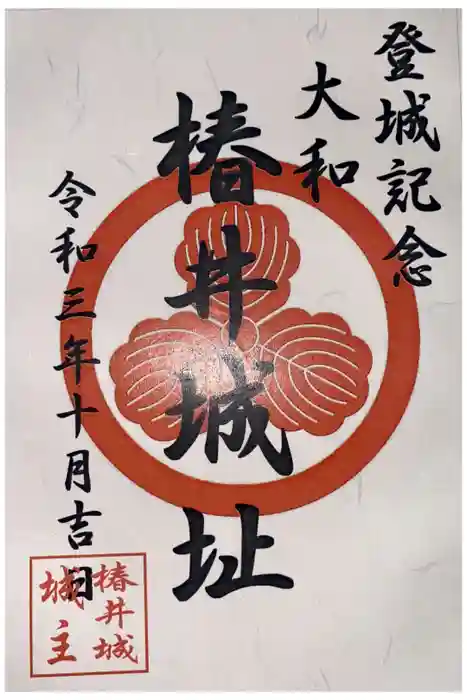 登城記念
大和
椿井城址
令和三年十月吉日
椿井城
城主